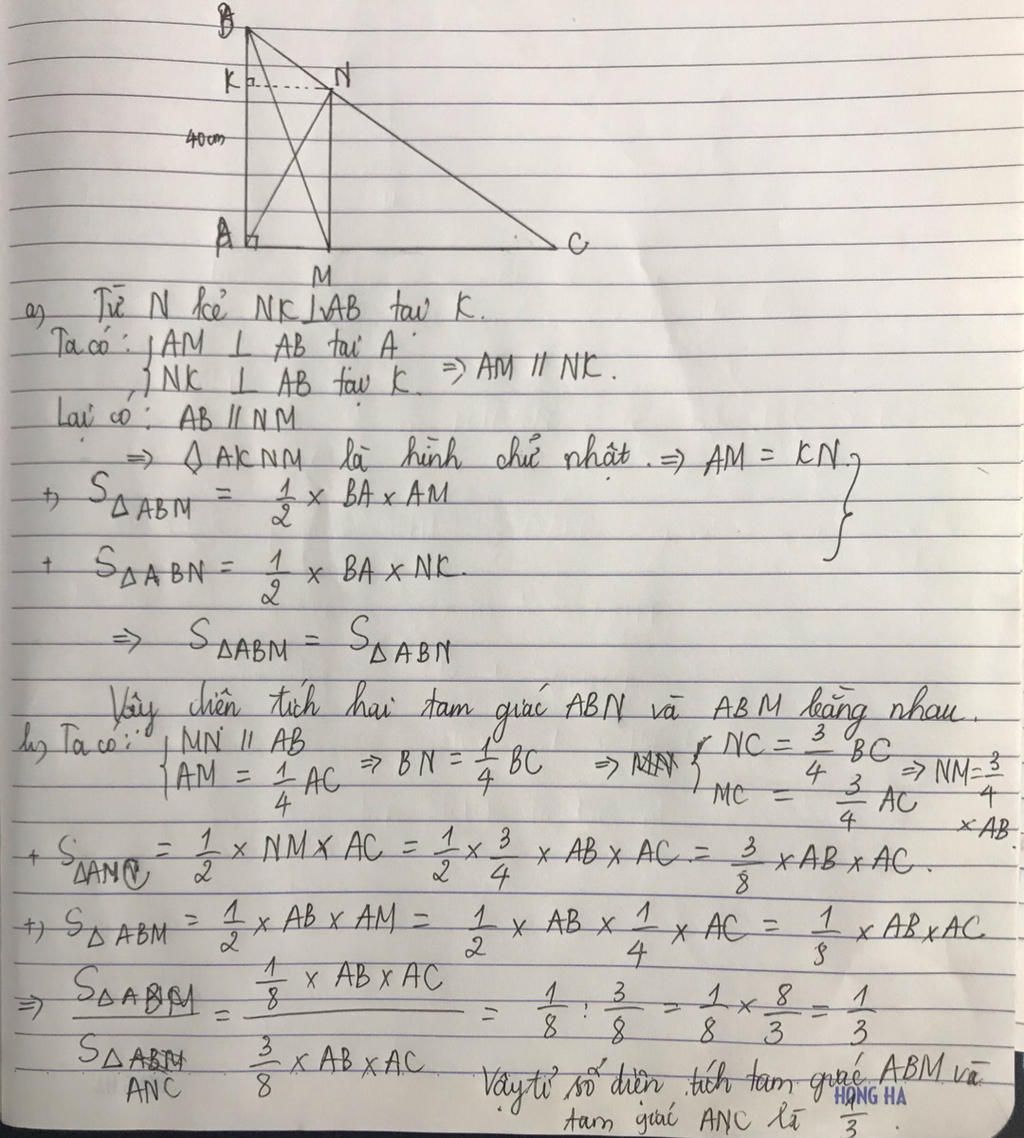 B
K
N
40cm
A
M
C
a) Từ N kẻ NK ⊥ AB tại K.
Ta có: { AM ⊥ AB tại A
NK ⊥ AB tại K. => AM // NK.
Lại có: AB // NM
=> ◊ AKNM là hình chữ nhật. => AM = KN. }
+) S△ABM = 1/2 × BA × AM
+ S△ABN = 1/2 × BA × NK.
=> S△ABM = S△ABN
Vậy diện tích hai tam giác ABN và ABM bằng nhau.
b) Ta có: { MN // AB
AM = 1/4 AC => BN = 1/4 BC => { NC = 3/4 BC
MC = 3/4 AC => NM = 3/4 × AB.
+ S△ANC = 1/2 × NM × AC = 1/2 × 3/4 × AB × AC = 3/8 × AB × AC.
+) S△ABM = 1/2 × AB × AM = 1/2 × AB × 1/4 × AC = 1/8 × AB × AC
=> S△ABM / S△ANC = (1/8 × AB × AC) / (3/8 × AB × AC) = 1/8 : 3/8 = 1/8 × 8/3 = 1/3
Vậy tỉ số diện tích tam giác ABM và
HONG HA
tam giác ANC là 1/3.